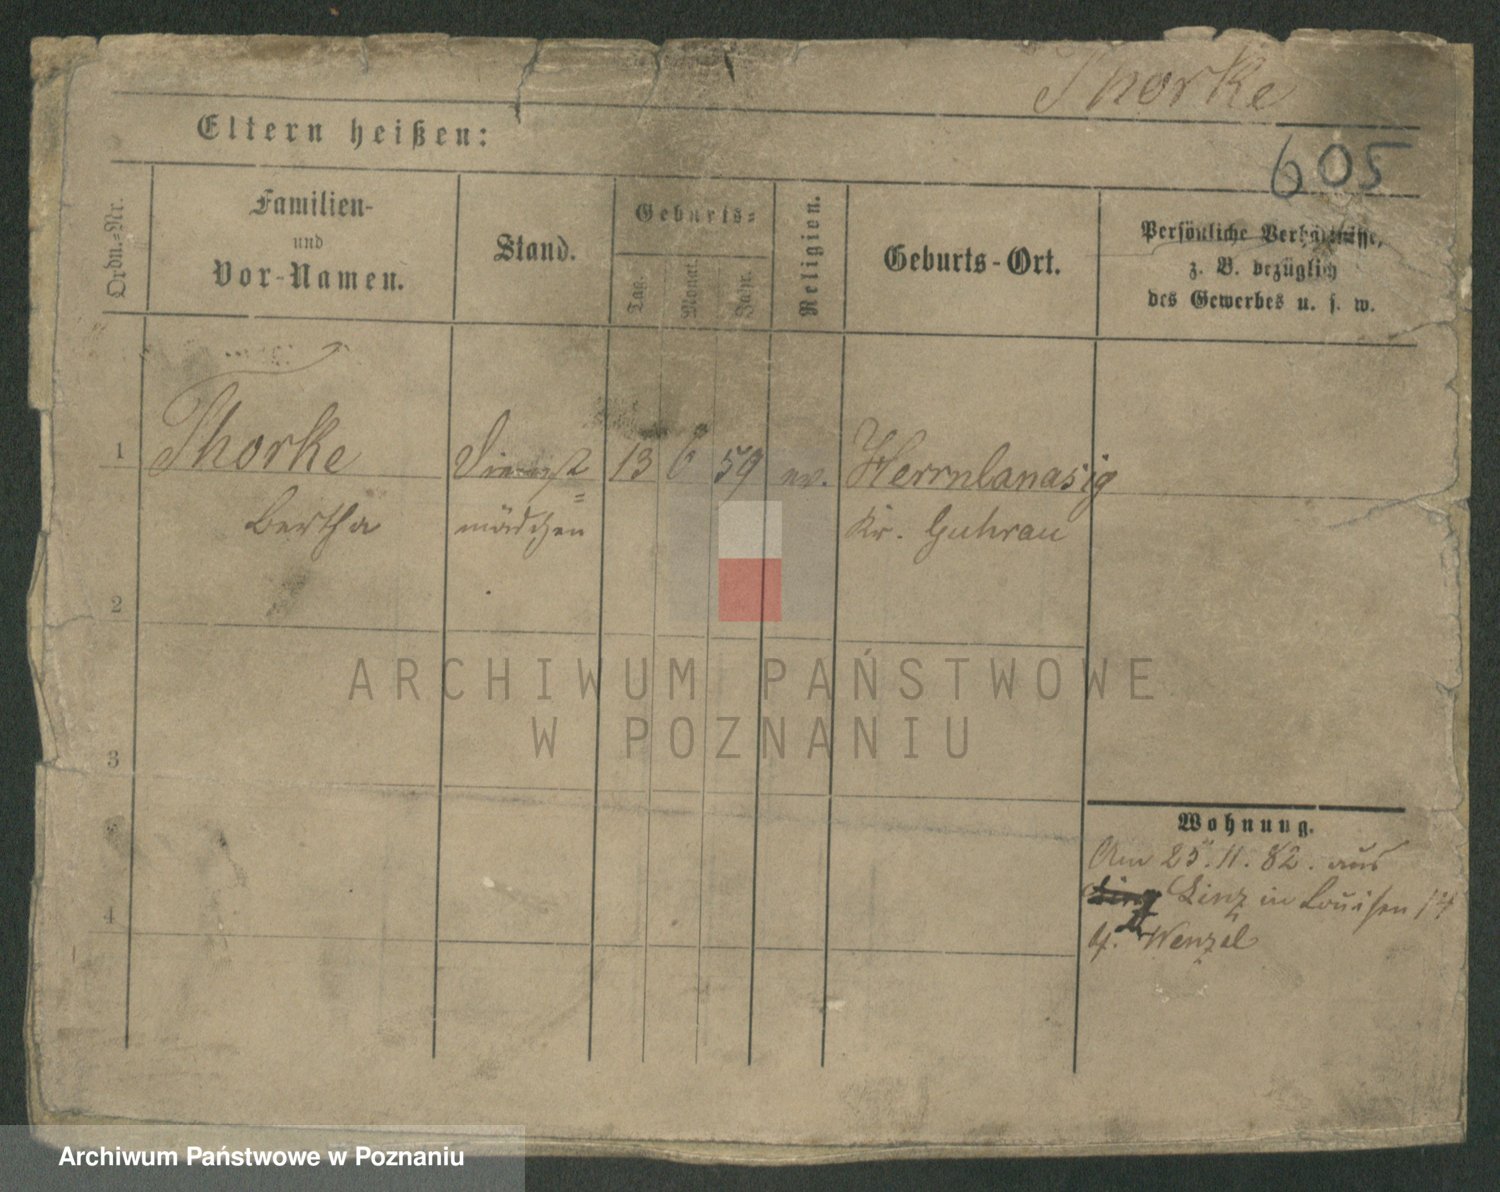 Thorke
605
Eltern heißen:
Ordn.-Nr.
Familien-
und
Vor-Namen.
Stand.
Geburts-
Tag.
Monat.
Jahr.
Religion.
Geburts-Ort.
Persönliche Verhältnisse,
z. B. bezüglich
des Gewerbes u. s. w.
1
Thorke Dienst= 13 6 59 ev. Herrnlanasig
Bertha mädchen Kr. Guhrau
2
3
4
Wohnung.
Am 25.11.82. aus
Linz in Louisen 14
b. Wenzel
ARCHIWUM PAŃSTWOWE
W POZNANIU
Archiwum Państwowe w Poznaniu